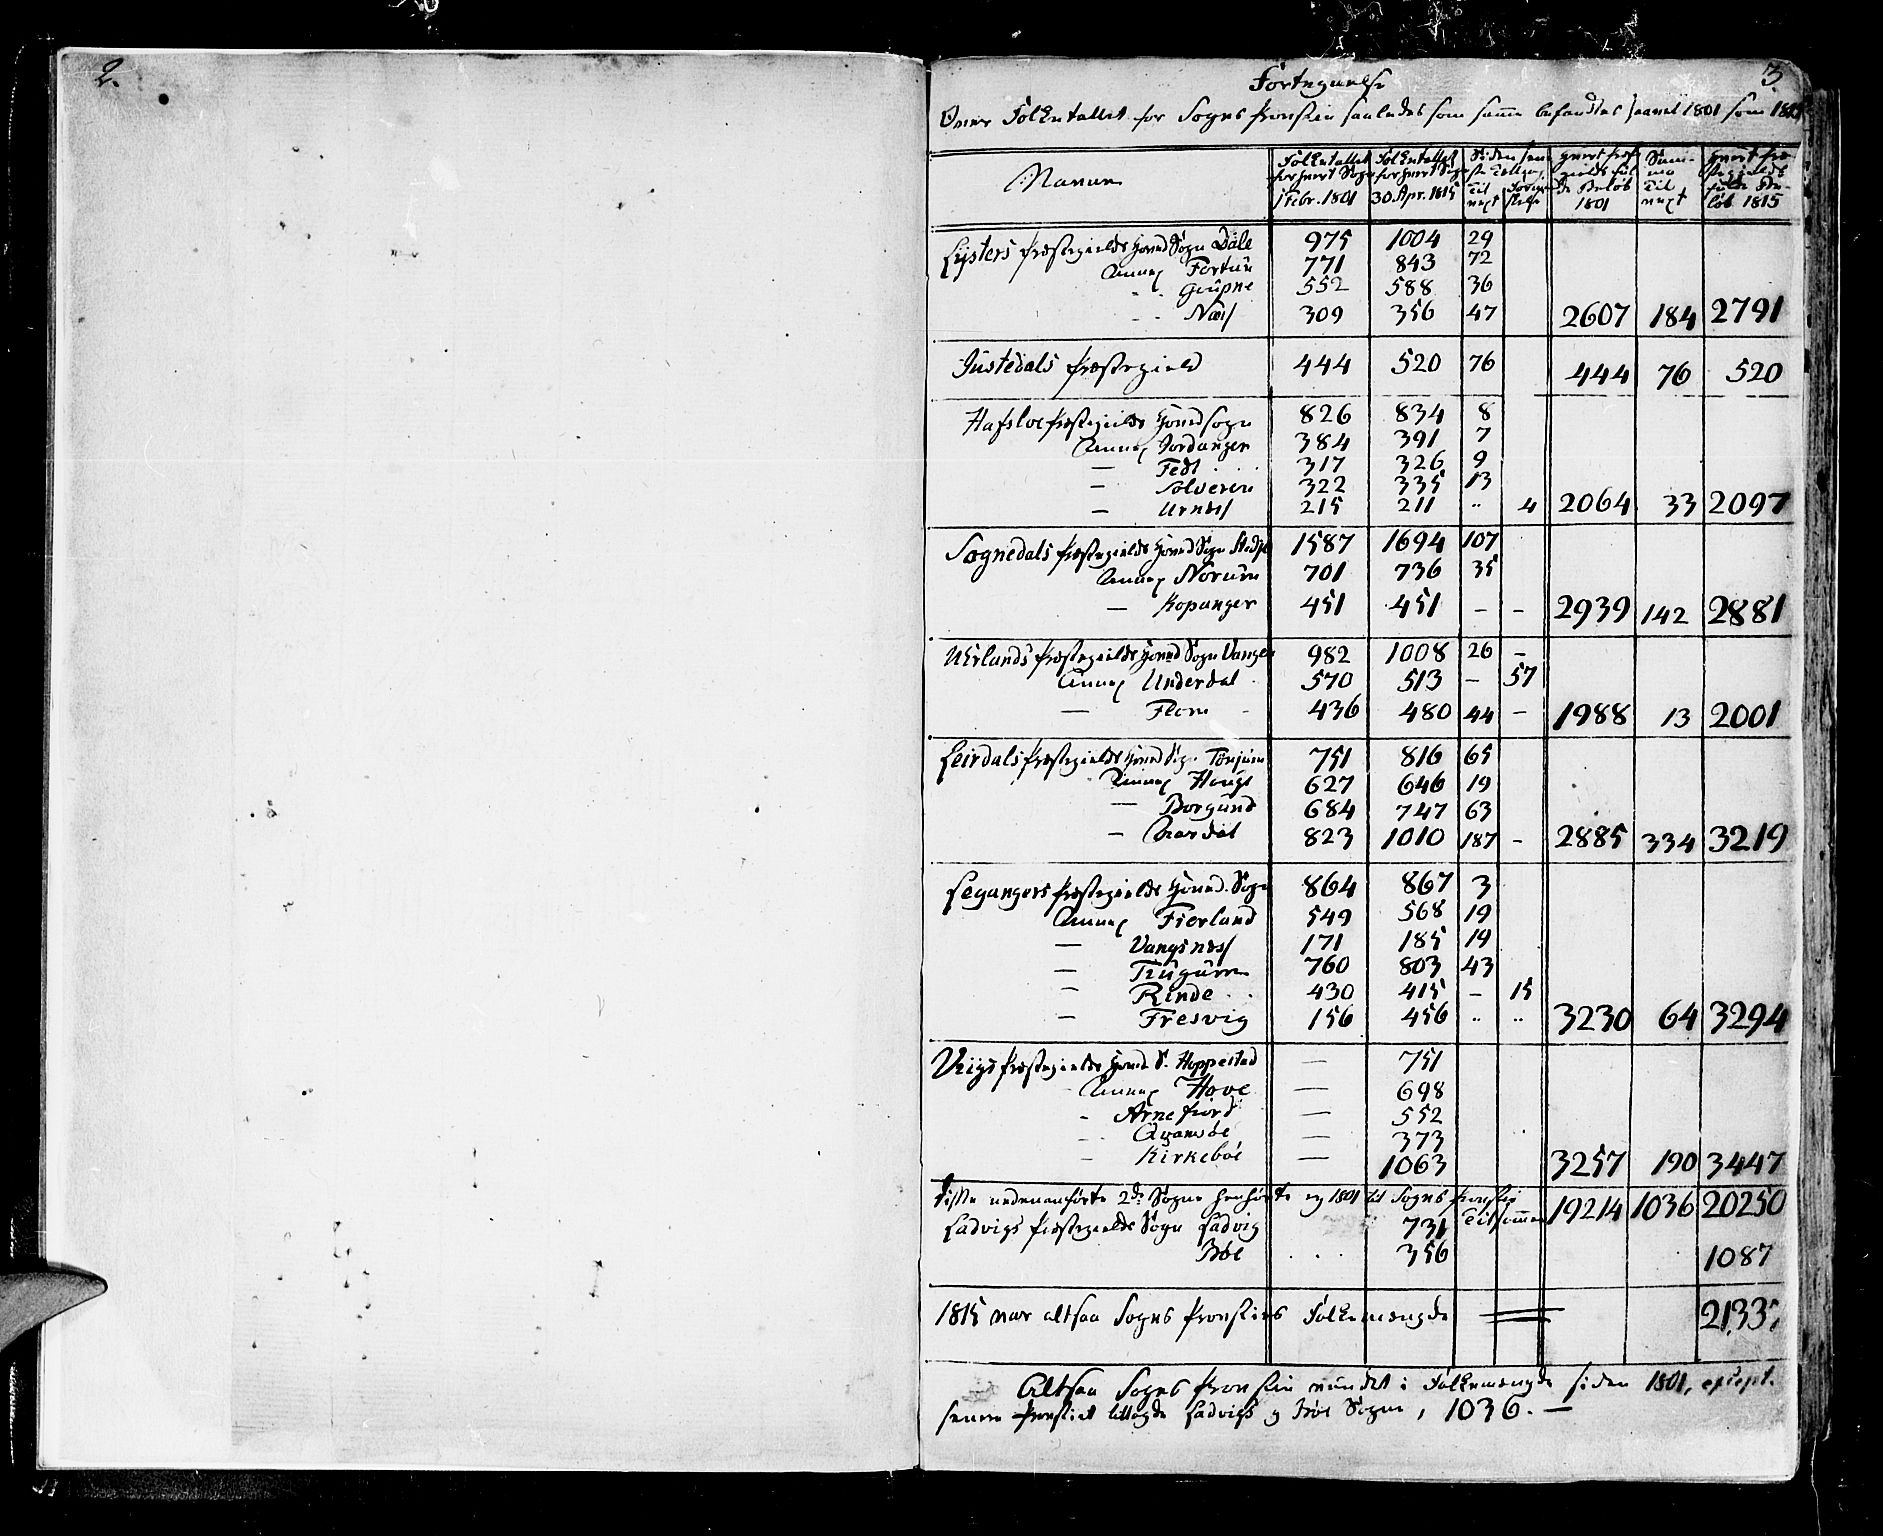 2.
3
Fortegnelse
Over Folketallet for Sogns Provstie saaledes som samme befandtes saavel 1801 som 1815
Navne | Folketallet for hvert Sogn 1 Febr. 1801 | Folketallet for hvert Sogn 30 Apr. 1815 | Siden sen- ste Til vext | hvert Præste gields ful de Beløb 1801 | Sum- ma Til vext | hvert Præ- stegields fulde Be- løb 1815
Lysters Præstegields Hoved Sogn Dale 975 1004 29
Annex Fortun 771 843 72
- - Gaupne 552 588 36
- - Næss 309 356 47 2607 184 2791
Justedals Præstegield 444 520 76 444 76 520
Hafsloe Præstegields Hovedsogn 826 834 8
Annex Jordanger 384 391 7
— Fedt 317 326 9
— Solveren 322 335 13
— Urness 215 211 .. 4 2064 33 2097
Sognedals Præstegields Hoved Sogn Stedje 1587 1694 107
Annex Norum 701 736 35
— Kopanger 451 451 - - 2939 142 2881
Urlands Præstegields Hoved Sogn Vangen 982 1008 26 -
Annex Underdal 570 513 - 57
— Flom 436 480 44 - 1988 13 2001
Leirdals Præstegields Hoved Sogn Tonjum 751 816 65
Annex Hougs 627 646 19
— Borgund 684 747 63
— Aardal 823 1010 187 - 2885 334 3219
Leganger Præstegields Hoved Sogn 864 867 3
Annex Fierland 549 568 19
— Vangsness 171 185 14
— Tiugum 760 803 43
— Rinde 430 415 - 15
— Fresvig 156 456 .. .. 3230 64 3294
Viigs Præstegields Hoved S. Hoppestad — 751
Annex Hove — 698
- Arnefiord — 552
- Qvamsøe — 373
- Kirkebøe — 1063 3257 190 3447
Disse nedenanførte 2de Sogne henhørte ey 1801 til Sogns Provstie Tilsammen 19214 1036 20250
Ladvigs Præstegields Sogn Ladvig 731
Bøe . . . 356 1087
1815 var altsaa Sogns Provsties Folkemængde 2133
Altsaa Sogns Provstie vundet i Folkemængde siden 1801,
senere Provstiet tillagde Ladvigs og Bøe Sogne, 1036. —